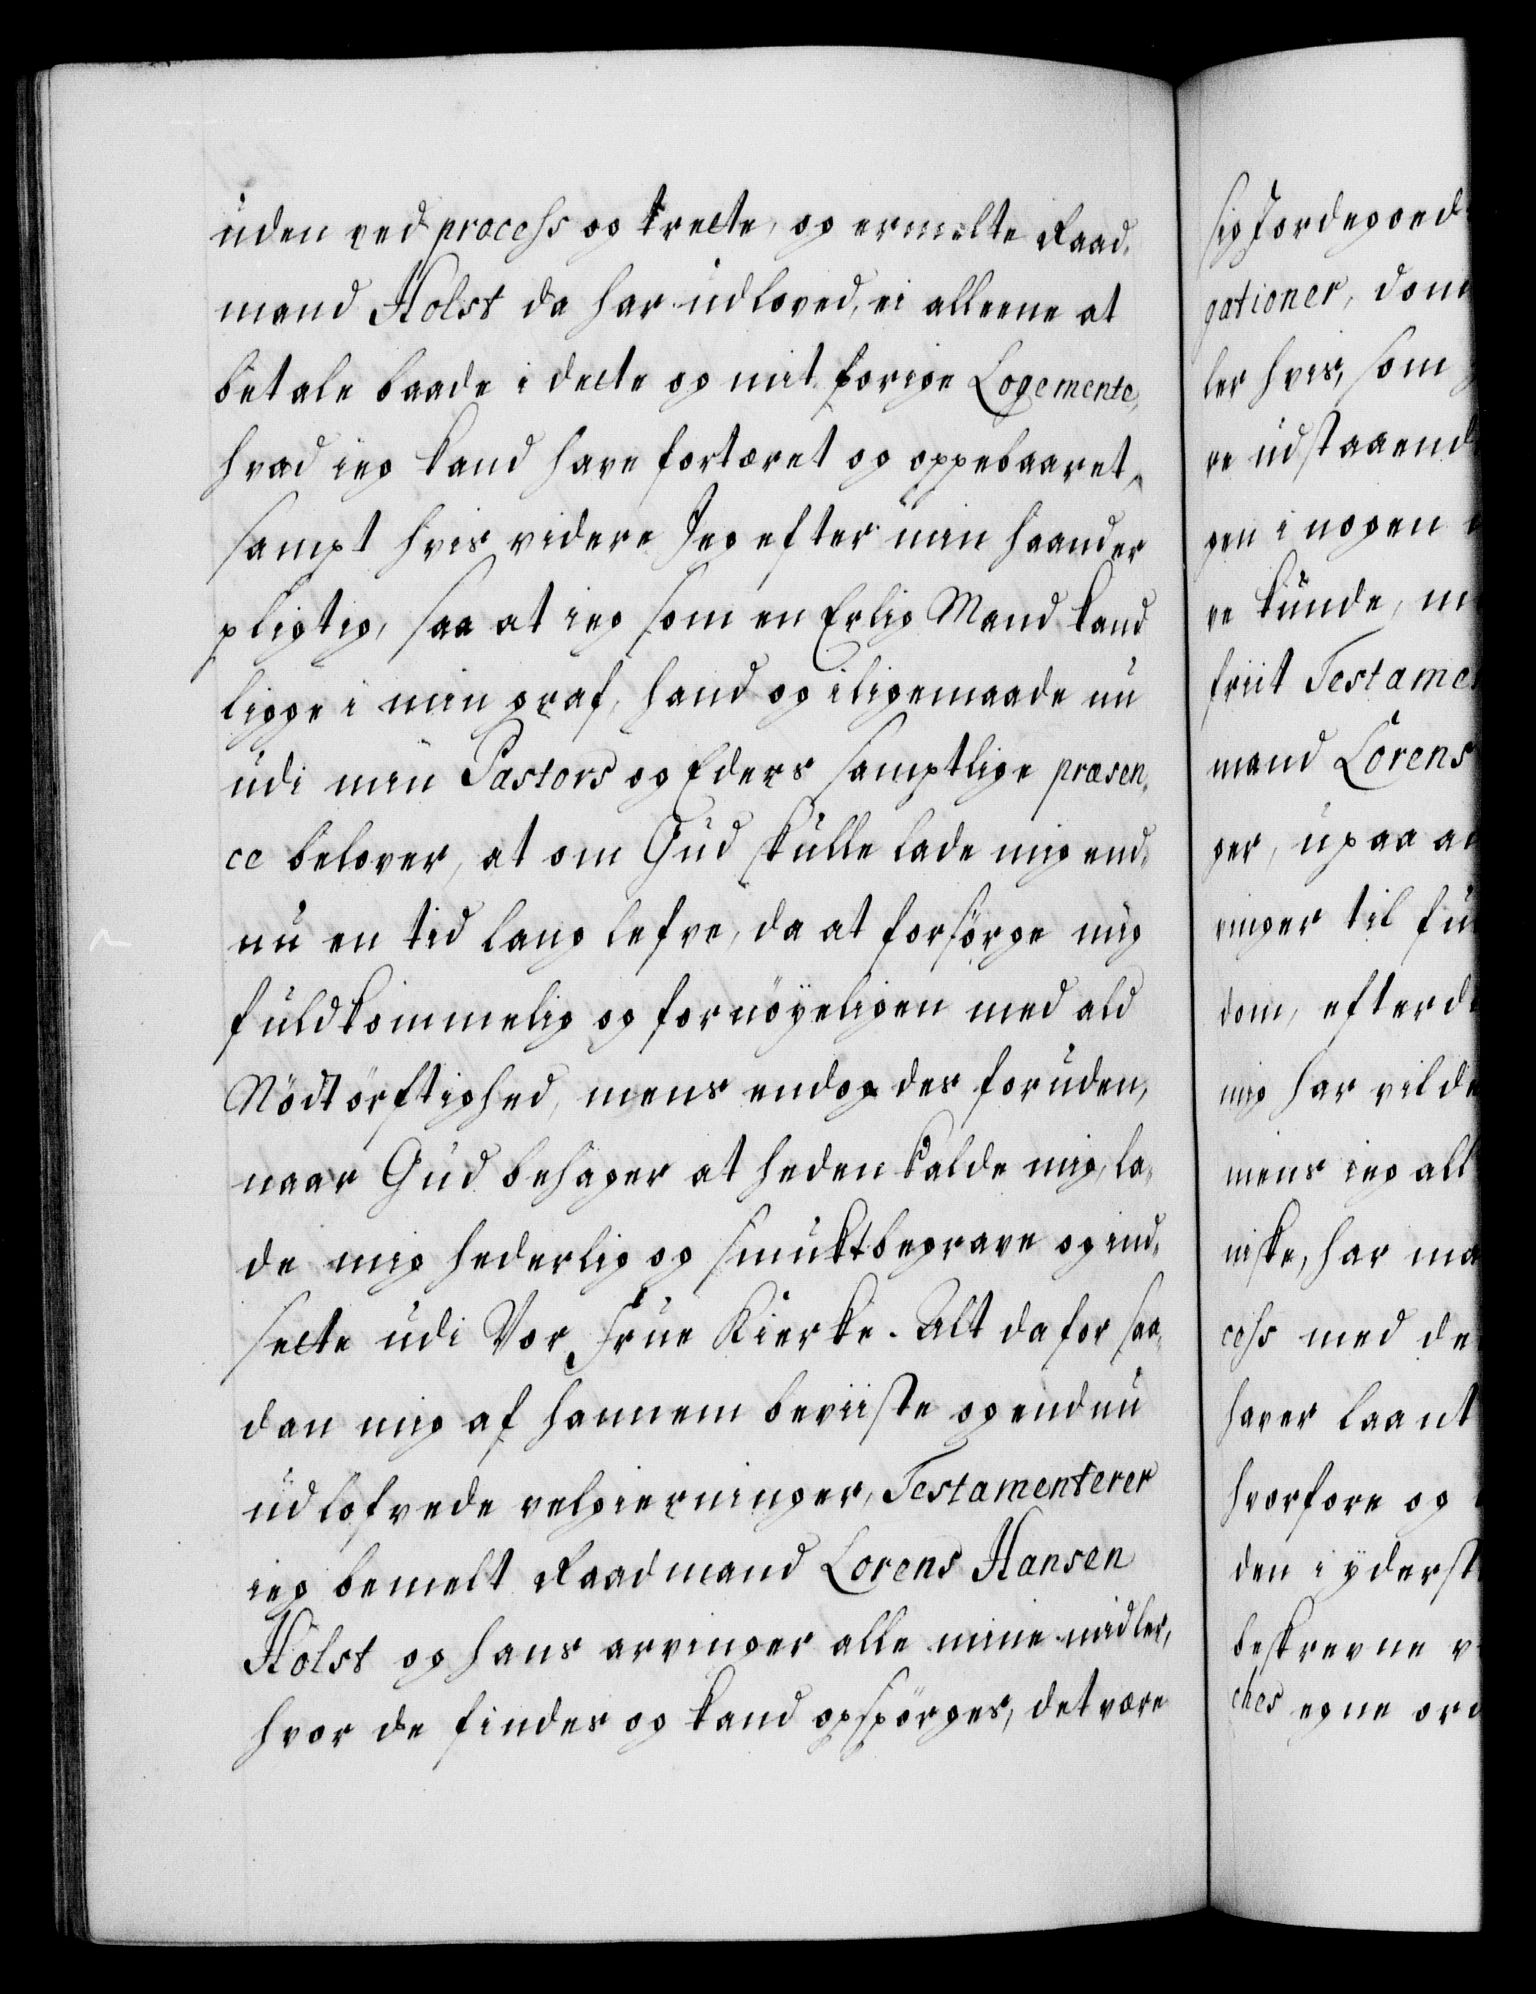 uden ved process og trette, og ermelte Raad,
mand Holst da har udloved, ei alleene at
betale baade i dette og mit forige Logemente,
hvad ieg kand have fortæret og oppebaaret,
sampt hvis videre Jeg efter min haand er
pligtig, saa at ieg som en Erlig Mand kand
ligge i min graf, hand og iligemaade nu
udi min Pastors og Eders samptlige præsen,
ce belover, at om Gud skulle lade mig end,
nu en tid lang lefve, da at forsörge mig
fuldkommelig og fornöyeligen med ald
Nödtörftighed, mens endog des foruden,
naar Gud behager at heden kalde mig, la,
de mig hederlig og smukt begrave og ind,
sette udi Vor Frue Kierke. Alt da for saa,
dan mig af hannem beviiste og endnu
udlofvede velgierninger, Testamenterer
ieg bemelt Raadmand Lorens Hansen
Holst og hans arvinger alle mine midler,
hvor de findes og kand opspörges, det være
sig Jordegoed
gationer, dom
ler hvis, som
re udstaaend
gen i nogen
re kunde, m
friit Testame
mand Lorens
ger, upaa a
ringer til fu
dom, efterd
mig har vilde
mens ieg all
niske, har ma
cess med de
haver laant
hvorfore og
den i yderst
beskrevne v
ches egne ord